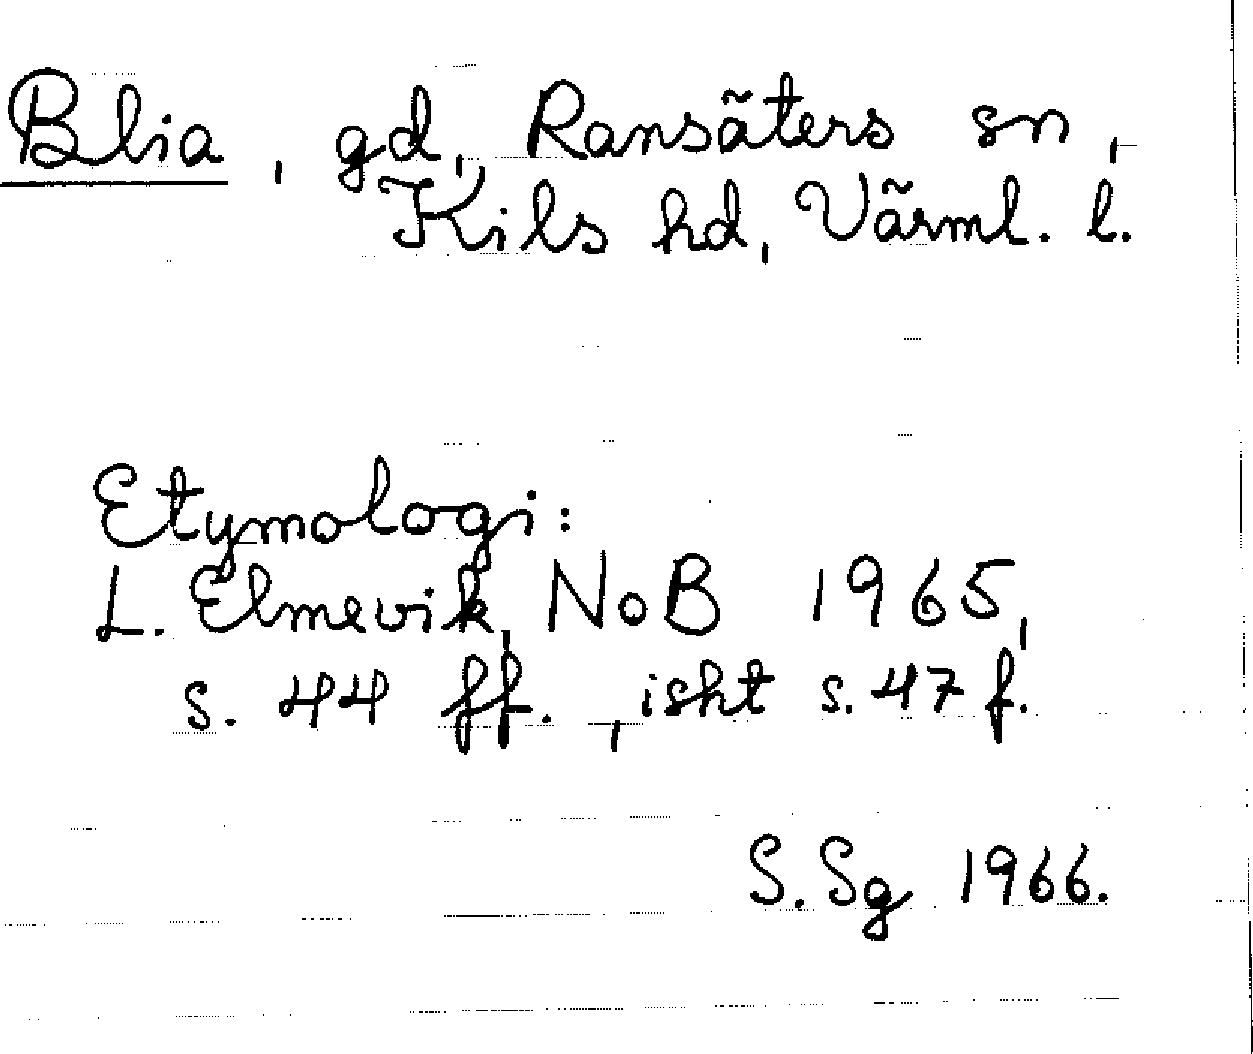 Blia, gd, Ransäters sn,
Kils hd, Värml. l.
Etymologi:
L. Elmevik, NoB 1965,
s. 44 ff., isht s. 47 f.
S. Sg 1966.